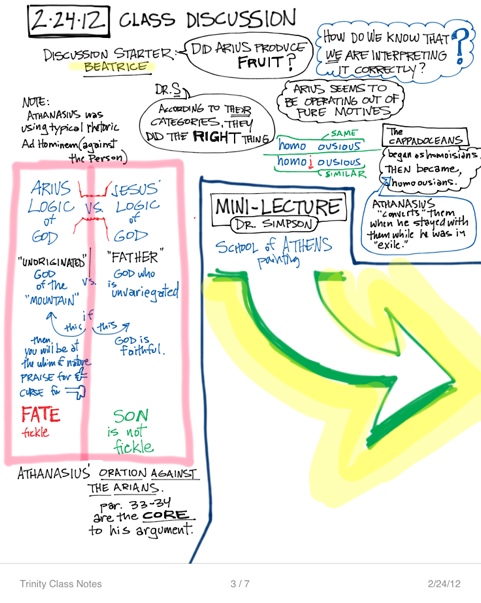 2.24.12 CLASS DISCUSSION
DISCUSSION STARTER:
BEATRICE
DID ARIUS PRODUCE
FRUIT?
HOW DO WE KNOW THAT
WE ARE INTERPRETING
IT CORRECTLY?
?
DR. S
ACCORDING TO THEIR
CATEGORIES, THEY
DID THE RIGHT THING
ARIUS SEEMS TO
BE OPERATING OUT OF
PURE MOTIVES.
NOTE:
ATHANASIUS was
using typical rhetoric
Ad Hominem (against
the Person)
SAME
homo ousious
homo i ousious
SIMILAR
The
CAPPADOCEANS
began as homoisians.
THEN became,
homo ousians.
ATHANASIUS
"converts" them
when he stayed with
them while he was in
"exile."
ARIUS VS. JESUS'
LOGIC LOGIC
of of
GOD GOD
"UNORIGINATED" VS. "FATHER"
GOD GOD who
of the is
"MOUNTAIN" unvariegated
if
this this
then,
you will be at
the whim of nature
PRAISE for
CURSE for
GOD is
faithful.
FATE
fickle
SON
is not
fickle
MINI-LECTURE
DR. SIMPSON
SCHOOL of ATHENS
painting
ATHANASIUS' ORATION AGAINST
THE ARIANS.
par. 33-34
are the CORE
to his argument.
Trinity Class Notes 3 / 7 2/24/12